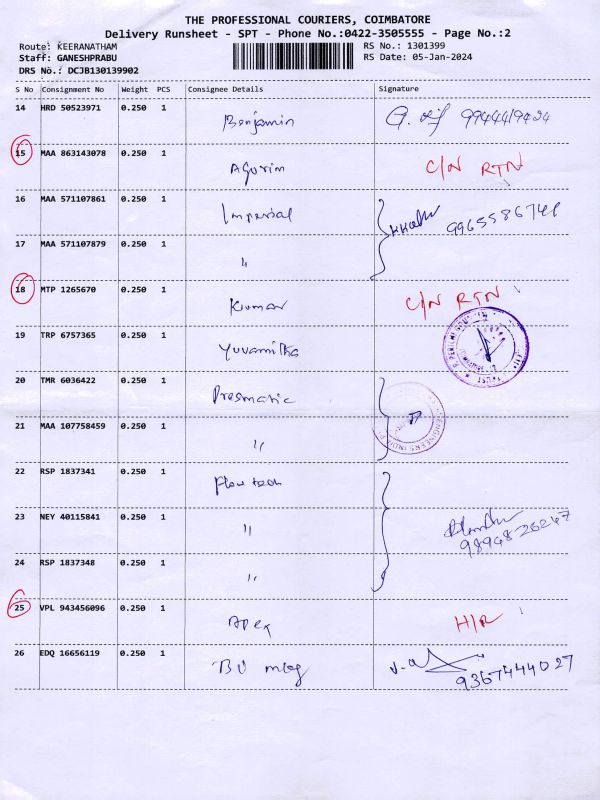 THE PROFESSIONAL COURIERS, COIMBATORE
Delivery Runsheet - SPT - Phone No.:0422-3505555 - Page No.:2
Route: KEERANATHAM RS No.: 1301399
Staff: GANESHPRABU RS Date: 05-Jan-2024
DRS No.: DCJB130139902
S No Consignment No Weight PCS Consignee Details Signature
14 HRD 50523971 0.250 1 Benjamin
15 MAA 863143078 0.250 1 C/N RTN
16 MAA 571107861 0.250 1 Imperial 9965586741
17 MAA 571107879 0.250 1 "
18 MTP 1265670 0.250 1 Kumar C/N RTN
19 TRP 6757365 0.250 1 Yuvamitha
20 TMR 6036422 0.250 1 Presmatic
21 MAA 107758459 0.250 1 " ENGINEERS INDIA
22 RSP 1837341 0.250 1 Flow tech
23 NEY 40115841 0.250 1 " 9894826247
24 RSP 1837348 0.250 1 "
25 VPL 943456096 0.250 1 Apex H/R
26 EDQ 16656119 0.250 1 9367444027